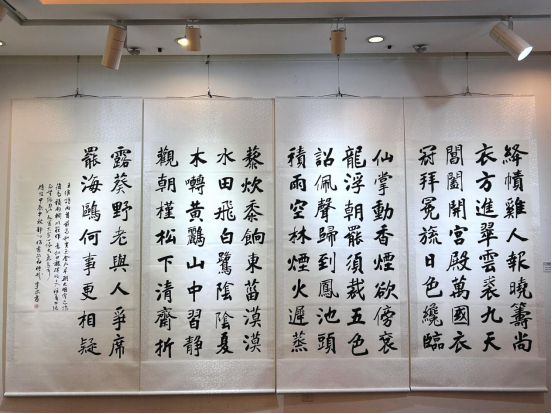 絳幘雞人報曉籌尚
衣方進翠雲裘九天
閶闔開宮殿萬國衣
冠拜冕旒日色纔臨
仙掌動香煙欲傍袞
龍浮朝罷須裁五色
詔佩聲歸到鳳池頭
積雨空林煙火遲蒸
藜炊黍餉東菑漠漠
水田飛白鷺陰陰夏
木囀黃鸝山中習靜
觀朝槿松下清齋折
露葵野老與人爭席
罷海鷗何事更相疑
王維詩兩首